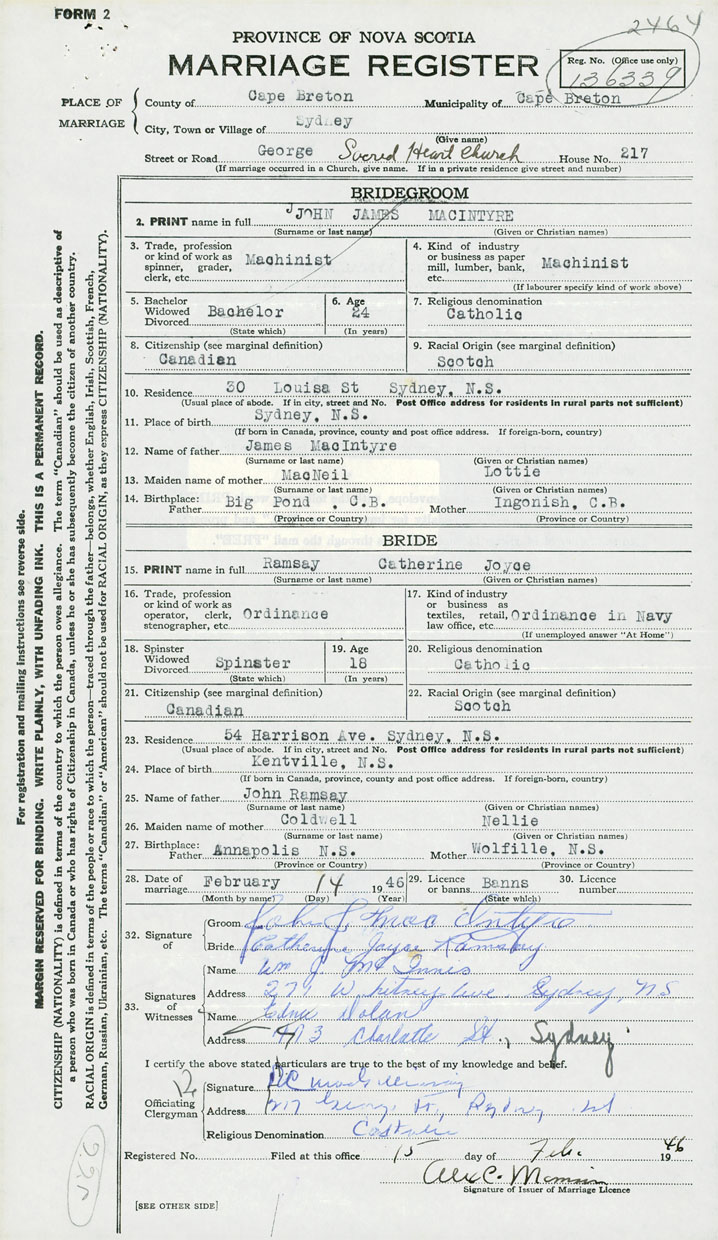 FORM 2
2464
PROVINCE OF NOVA SCOTIA
MARRIAGE REGISTER
Reg. No. (Office use only)
136339
PLACE OF MARRIAGE
County of Cape Breton Municipality of Cape Breton
City, Town or Village of Sydney
(Give name)
Street or Road George Sacred Heart Church House No. 217
(If marriage occurred in a Church, give name. If in a private residence give street and number)
BRIDEGROOM
2. PRINT name in full JOHN JAMES MACINTYRE
(Surname or last name) (Given or Christian names)
3. Trade, profession or kind of work as spinner, grader, clerk, etc. Machinist
4. Kind of industry or business as paper mill, lumber, bank, etc. Machinist
(If labourer specify kind of work above)
5. Bachelor Widowed Divorced Bachelor
(State which)
6. Age 24
(In years)
7. Religious denomination
Catholic
8. Citizenship (see marginal definition)
Canadian
9. Racial Origin (see marginal definition)
Scotch
10. Residence 30 Louisa St Sydney, N.S.
(Usual place of abode. If in city, street and No. Post Office address for residents in rural parts not sufficient)
11. Place of birth Sydney, N.S.
(If born in Canada, province, county and post office address. If foreign-born, country)
12. Name of father James MacIntyre
(Surname or last name) (Given or Christian names)
13. Maiden name of mother MacNeil Lottie
(Surname or last name) (Given or Christian names)
14. Birthplace: Father Big Pond , C.B. Mother Ingonish, C.B.
(Province or Country) (Province or Country)
BRIDE
15. PRINT name in full Ramsay Catherine Joyce
(Surname or last name) (Given or Christian names)
16. Trade, profession or kind of work as operator, clerk, stenographer, etc. Ordinance
17. Kind of industry or business as textiles, retail, law office, etc. Ordinance in Navy
(If unemployed answer "At Home")
18. Spinster Widowed Divorced Spinster
(State which)
19. Age 18
(In years)
20. Religious denomination
Catholic
21. Citizenship (see marginal definition)
Canadian
22. Racial Origin (see marginal definition)
Scotch
23. Residence 54 Harrison Ave. Sydney, N.S.
(Usual place of abode. If in city, street and No. Post Office address for residents in rural parts not sufficient)
24. Place of birth Kentville, N.S.
(If born in Canada, province, county and post office address. If foreign-born, country)
25. Name of father John Ramsay
(Surname or last name) (Given or Christian names)
26. Maiden name of mother Coldwell Nellie
(Surname or last name) (Given or Christian names)
27. Birthplace: Father Annapolis N.S. Mother Wolfille, N.S.
(Province or Country) (Province or Country)
28. Date of marriage February 14 1946
(Month by name) (Day) (Year)
29. Licence or banns Banns
(State which)
30. Licence number
32. Signature of
Groom John J. MacIntyre
Bride Catherine Joyce Ramsay
33. Signatures of Witnesses
Name Wm J. McInnis
Address 271 Whitney Ave Sydney, NS
Name Edna Dolan
Address 473 Charlotte St., Sydney
I certify the above stated particulars are true to the best of my knowledge and belief.
Officiating Clergyman
Signature
Address 217 George St, Sydney
Religious Denomination Catholic
Registered No. Filed at this office 15 day of Feb. 1946
Alex C.
Signature of Issuer of Marriage Licence
[SEE OTHER SIDE]
For registration and mailing instructions see reverse side.
MARGIN RESERVED FOR BINDING. WRITE PLAINLY, WITH UNFADING INK. THIS IS A PERMANENT RECORD.
CITIZENSHIP (NATIONALITY) is defined in terms of the country to which the person owes allegiance. The term "Canadian" should be used as descriptive of
a person who was born in Canada or who has rights of Citizenship in Canada, unless he or she has subsequently become the citizen of another country.
RACIAL ORIGIN is defined in terms of the people or race to which the person—traced through the father—belongs, whether English, Irish, Scottish, French,
German, Russian, Ukrainian, etc. The terms "Canadian" or "American" should not be used for RACIAL ORIGIN, as they express CITIZENSHIP (NATIONALITY).